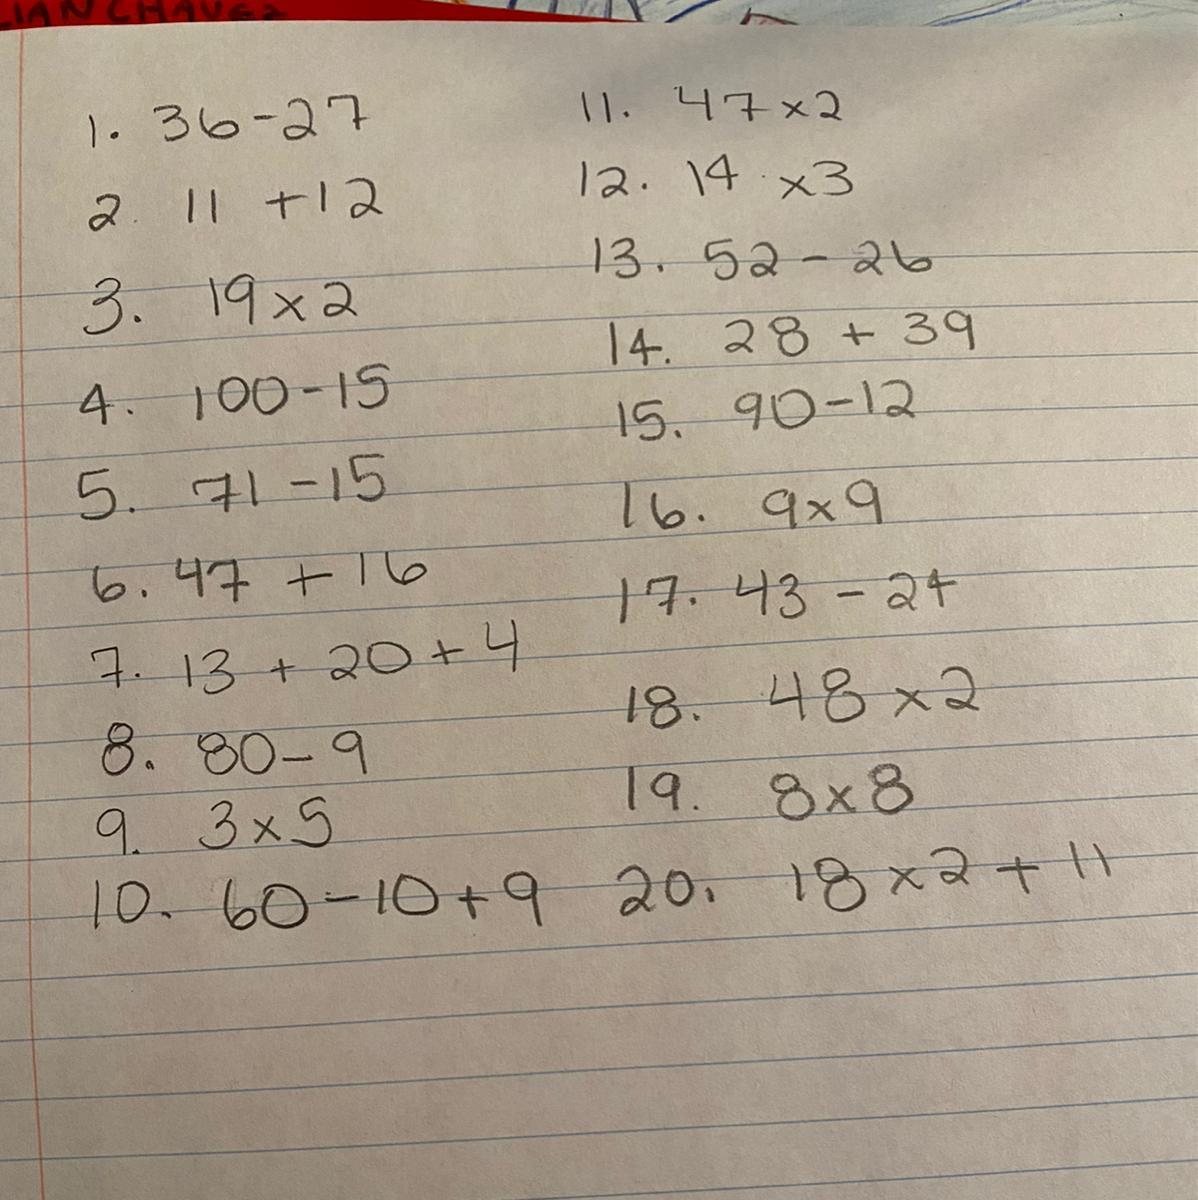 LIAN CHAVEZ
1. 36-27
2. 11 +12
3. 19x2
4. 100-15
5. 71-15
6. 47 + 16
7. 13 + 20 + 4
8. 80-9
9. 3x5
10. 60-10+9
11. 47x2
12. 14 x3
13. 52 - 26
14. 28 + 39
15. 90-12
16. 9x9
17. 43 - 24
18. 48 x2
19. 8x8
20. 18 x2 + 11